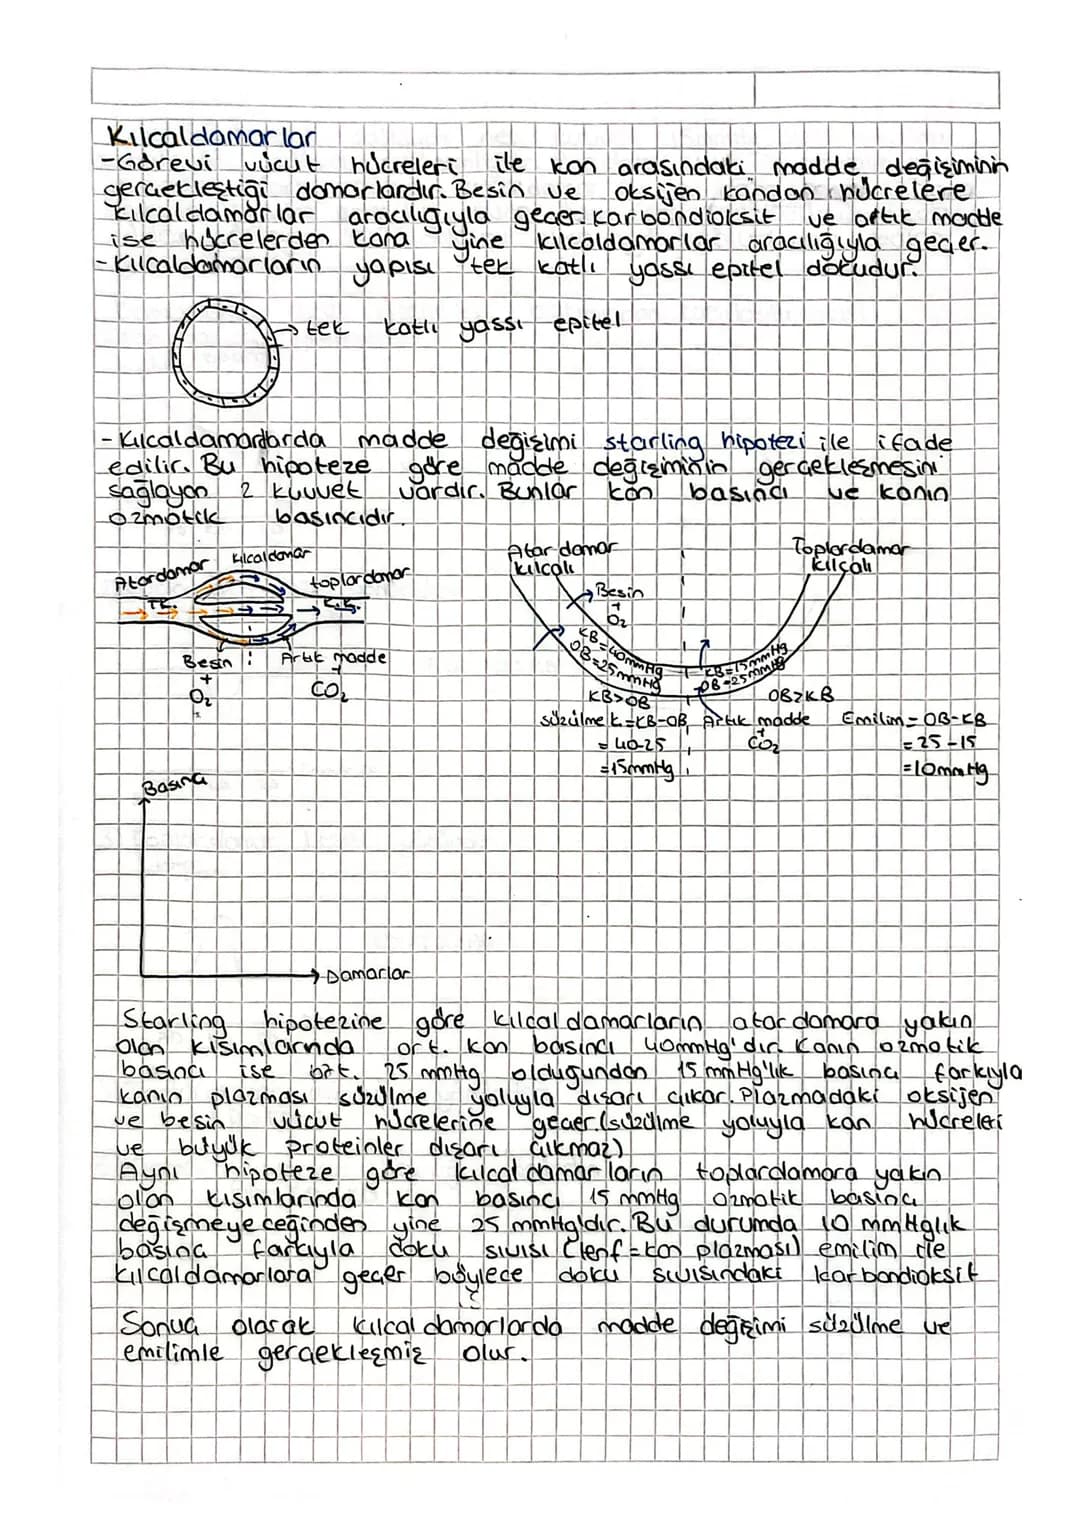 Kılcaldamarlar
-Görevi vücut hücreleri ile kan arasındaki madde değişiminin
gerçekleştiği damarlardır. Besin ve oksijen kandan hücrelere
kılcaldamarlar aracılığıyla geçer. Karbondioksit ve artık madde
ise hücrelerden kana yine kılcaldamarlar aracılığıyla geçer.
-Kılcaldamarların yapısı tek katlı yassı epitel dokudur.
tek katlı yassı epitel
-Kılcaldamarlarda madde değişimi starling hipotezi ile ifade
edilir. Bu hipoteze göre madde değişiminin gerçekleşmesini
sağlayan 2 kuvvet vardır. Bunlar kan basıncı ve kanın
ozmotik basıncıdır.
Atardamar kılcaldamar toplardamar
T.K. K.K.
Besin Artık madde
+ +
O₂ CO₂
Atar damar kılcalı
Toplardamar kılcalı
Besin
+
O₂
KB=40mmHg
OB=25mmHg
KB=15mmHg
OB=25mmHg
KB>OB
OB>KB
süzülme k=KB-OB
= 40-25
=15mmHg
Artık madde
+
CO₂
Emilim= OB-KB
= 25-15
=10mmHg
Basınç
Damarlar
Starling hipotezine göre kılcaldamarların atardamara yakın
olan kısımlarında ort. kan basıncı 40mmHg'dır. Kanın ozmotik
basıncı ise ort. 25 mmHg olduğundan 15 mmHg'lık basınç farkıyla
kanın plazması süzülme yoluyla dışarı çıkar. Plazmadaki oksijen
ve besin vücut hücrelerine geçer.(süzülme yoluyla kan hücreleri
ve büyük proteinler dışarı çıkmaz)
Aynı hipoteze göre kılcaldamarların toplardamara yakın
olan kısımlarında kan basıncı 15 mmHg ozmotik basınç
değişmeyeceğinden yine 25 mmHg'dır. Bu durumda 10 mmHglık
basınç farkıyla doku sıvısı (lenf=kan plazması) emilim ile
kılcaldamarlara geçer böylece doku sıvısındaki karbondioksit
Sonuç olarak kılcaldamarlarda madde değişimi süzülme ve
emilimle gerçekleşmiş olur.